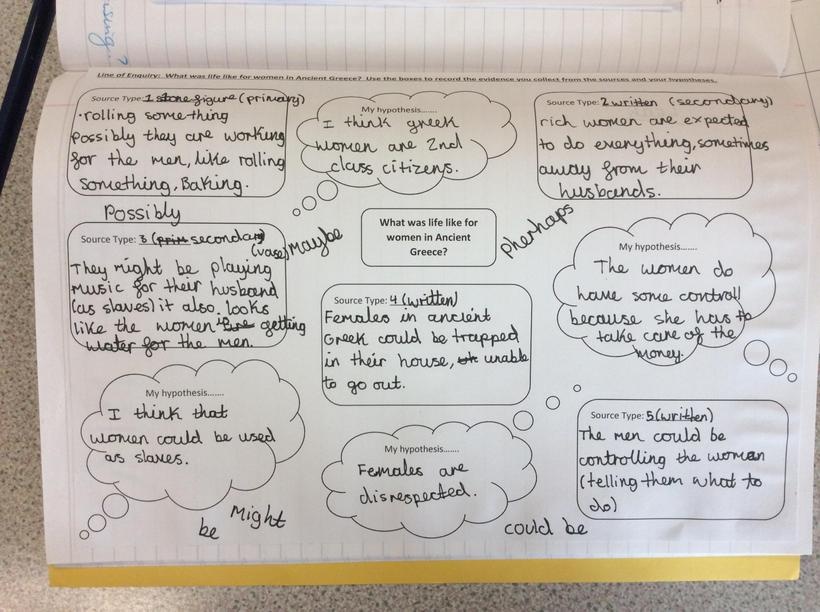 ising..?
Line of Enquiry: What was life like for women in Ancient Greece? Use the boxes to record the evidence you collect from the sources and your hypotheses.
Source Type: 1 stone figure (primary)
·rolling something
Possibly they are working
for the men, like rolling
something, Baking.
My hypothesis.......
I think greek
women are 2nd
class citizens.
Source Type: 2 written (secondary)
rich women are expected
to do everything, sometimes
away from their
husbands.
Possibly
maybe
What was life like for
women in Ancient
Greece?
pherhaps
Source Type: 3 (prim secondary)
(vase)
They might be playing
music for their husband
(as slaves) it also looks
like the women getting
water for the men.
Source Type: 4 (written)
Females in ancient
Greek could be trapped
in their house, unable
to go out.
My hypothesis.......
The women do
have some controll
because she has to
take care of the
money.
My hypothesis.......
I think that
women could be used
as slaves.
My hypothesis.......
Females are
disrespected.
Source Type: 5 (written)
The men could be
controlling the woman
(telling them what to
do)
Might
be
could be